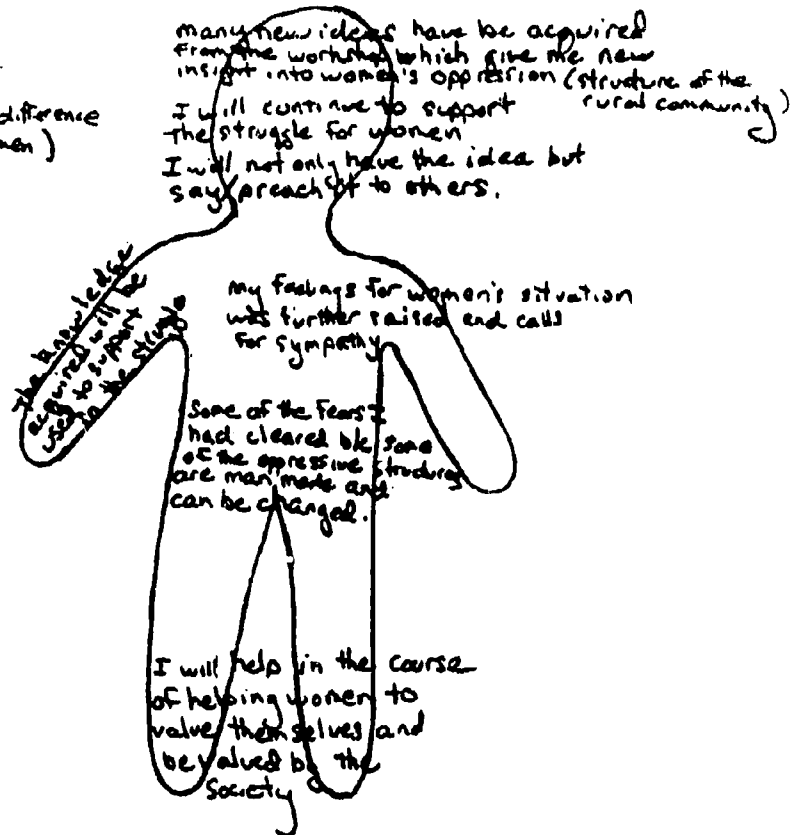 many new ideas have be acquired
from the workshop which give me new
insight into women's oppression (structure of the
rural community)
difference
men)
I will continue to support
the struggle for women
I will not only have the idea but
say/preach it to others.
The knowledge
acquired will be
used to support
in the struggle
my feelings for women's situation
was further raised and calls
for sympathy
Some of the fears I
had cleared b/c some
of the oppressive structures
are man made and
can be changed.
I will help in the course
of helping women to
value themselves and
be valued by the
society